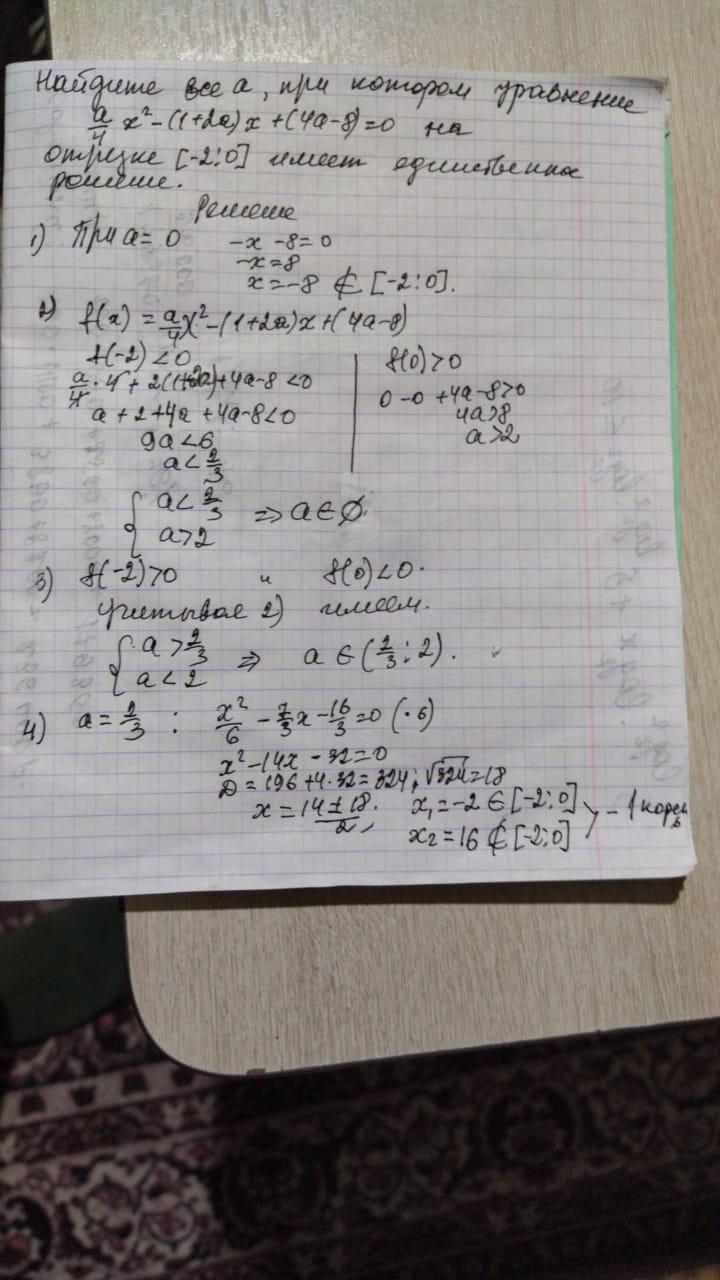 Найдите все a, при котором уравнение
a/4 x² - (1+2a)x + (4a-8) = 0 на
отрезке [-2;0] имеет единственное
решение.
Решение
1) При a = 0 -x - 8 = 0
-x = 8
x = -8 ∉ [-2;0].
2) f(x) = a/4 x² - (1+2a)x + (4a-8)
f(-2) < 0
a/4 · 4 + 2(1+2a) + 4a - 8 < 0
a + 2 + 4a + 4a - 8 < 0
9a < 6
a < 2/3
f(0) > 0
0 - 0 + 4a - 8 > 0
4a > 8
a > 2
{ a < 2/3
a > 2 ⇒ a ∈ ∅.
3) f(-2) > 0 и f(0) < 0.
учитывая 2) имеем.
{ a > 2/3
a < 2 ⇒ a ∈ (2/3; 2).
4) a = 2/3 : x²/6 - 7/3 x - 16/3 = 0 (·6)
x² - 14x - 32 = 0
D = 196 + 4·32 = 324; √324 = 18
x = (14 ± 18)/2; x₁ = -2 ∈ [-2;0]
x₂ = 16 ∉ [-2;0] } - 1 корень